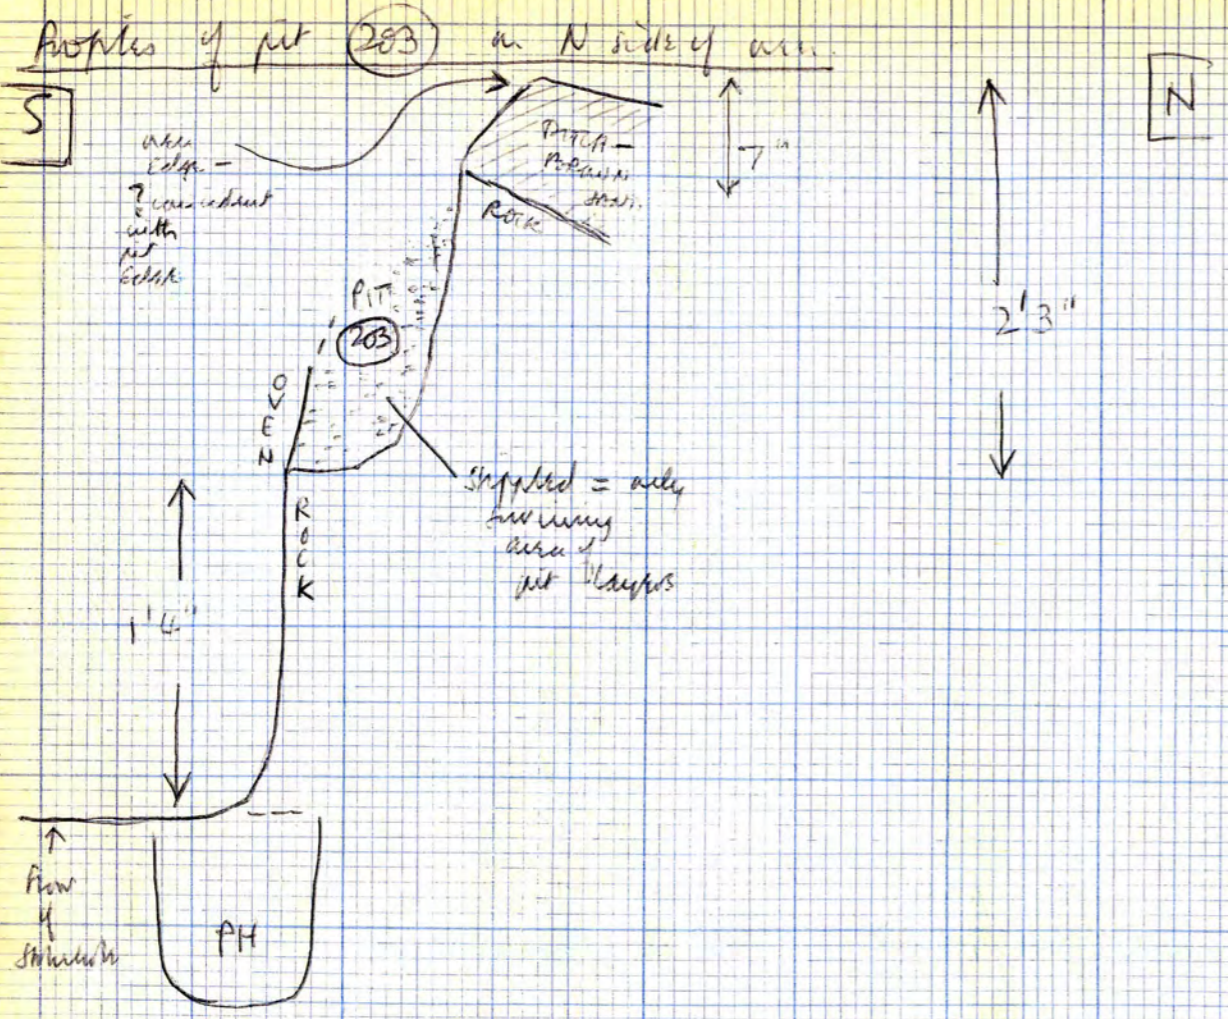 Profiles of pit 203 on N side of area.
S
N
area
Edge –
? coincident
with
pit
Edge
PITCH –
BROWN
7"
ROCK
2'3"
PIT
203
OVEN
stippled = only
surviving
area of
pit layers
ROCK
1'4"
Floor
of
structure
PH